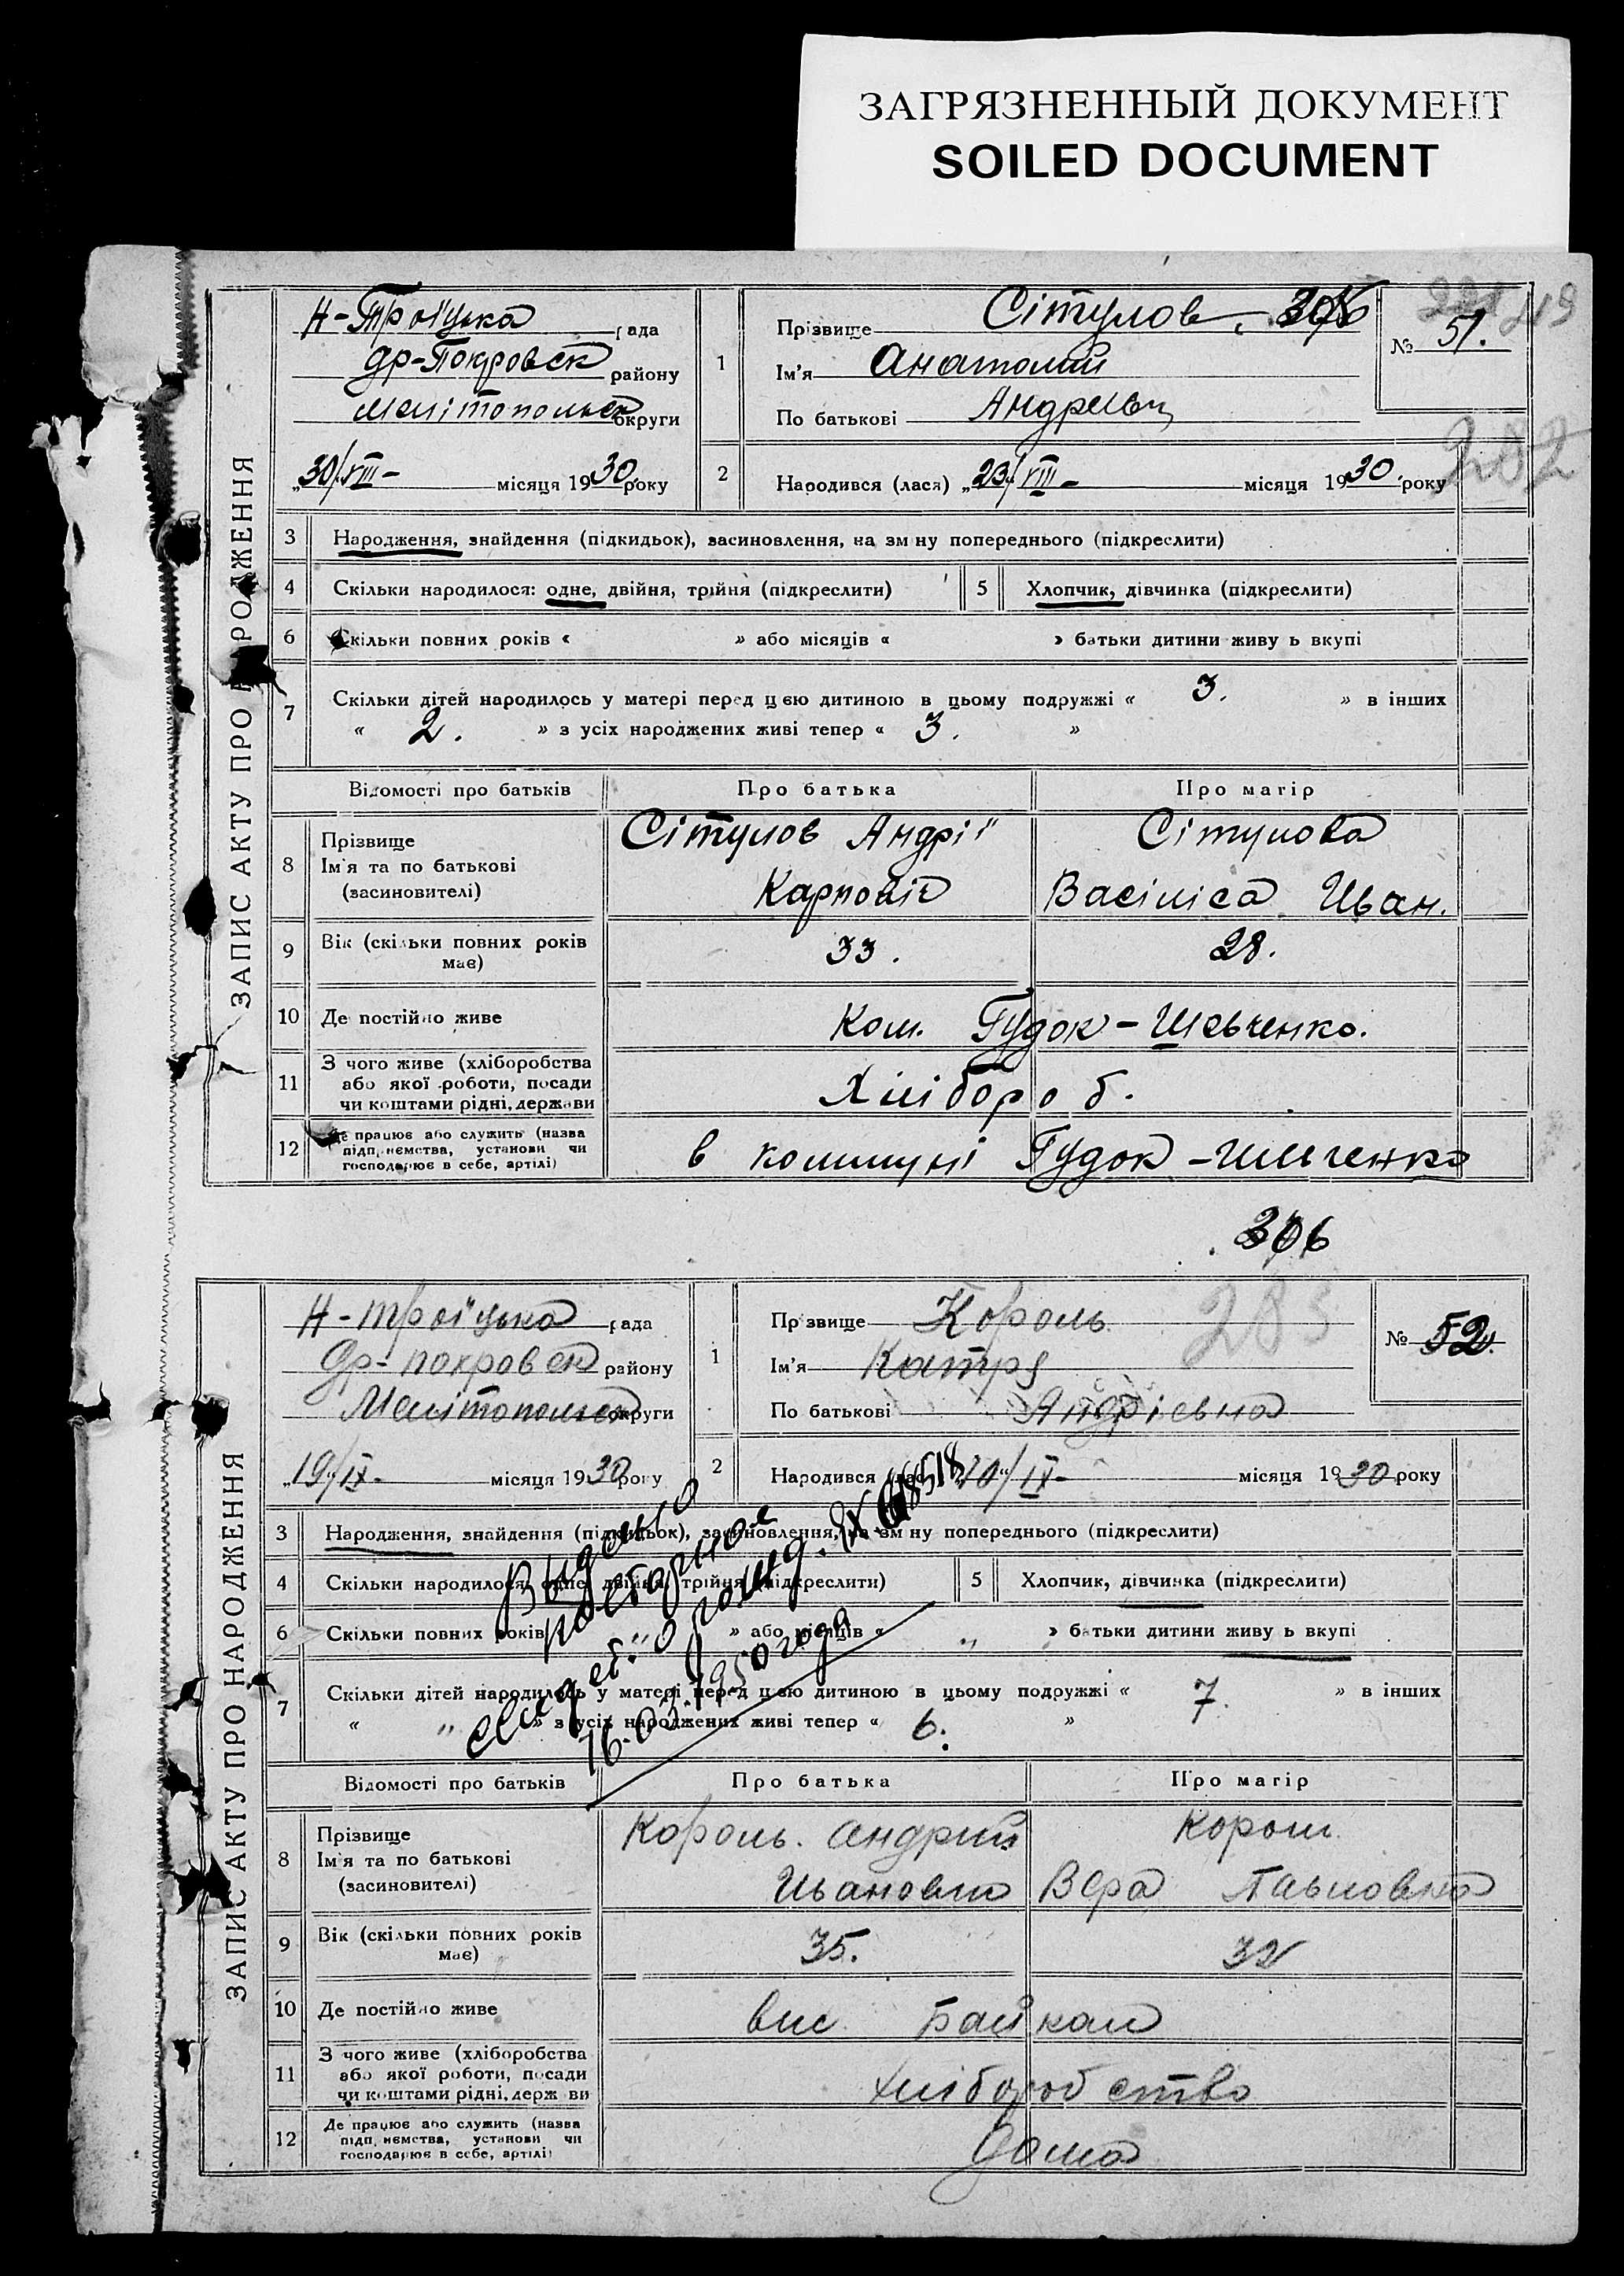 ЗАГРЯЗНЕННЫЙ ДОКУМЕНТ
SOILED DOCUMENT
ЗАПИС АКТУ ПРО НАРОДЖЕННЯ
Н-Троїцька рада
др-Покровск району
Мелітопольск округи
„30/VIII- місяця 1930 року
1
Прізвище Сітулов
Ім'я Анатолий
По батькові Андреевич
№ 51.
282
2
Народився (лася) „23/VIII- місяця 1930 року
3 Народження, знайдення (підкидьок), засиновлення, на зм ну попереднього (підкреслити)
4 Скільки народилося: одне, двійня, трійня (підкреслити)
5 Хлопчик, дівчинка (підкреслити)
6 Скільки повних років « » або місяців « » батьки дитини живу ь вкупі
7 Скільки дітей народилось у матері перед цією дитиною в цьому подружжі « 3. » в інших
« 2. » з усіх народжених живі тепер « 3. »
Відомості про батьків Про батька Про матір
8 Прізвище
Ім'я та по батькові
(засиновителі)
Сітулов Андрій
Карповіч
Сітулова
Васіліса Иван.
9 Вік (скільки повних років має) 33. 28.
10 Де постійно живе Ком. Гудок-Шевченко.
11 З чого живе (хліборобства
або якої роботи, посади
чи коштами рідні, держави
Хлібороб.
12 Де працює або служить (назва
підприємства, установи чи
господарює в себе, артілі)
в коммуні Гудок-Шевченко
306
ЗАПИС АКТУ ПРО НАРОДЖЕННЯ
Н-Троїцька рада
др-покровск району
Мелітопольск округи
„19/IX- місяця 1930 року
1
Пр звище Король
Ім'я Катря
По батькові Андріевна
№ 52.
283
2
Народився (лася) „10"/IX- місяця 1930 року
3 Народження, знайдення (підкидьок), засиновлення, на зм ну попереднього (підкреслити)
4 Скільки народилося: одне, двійня, трійня (підкреслити)
5 Хлопчик, дівчинка (підкреслити)
6 Скільки повних років „ » або місяців « „ » батьки дитини живу ь вкупі
7 Скільки дітей народилось у матері перед цією дитиною в цьому подружжі « 7. » в інших
« „ » з усіх народжених живі тепер « 6. »
Выдано
повторное
свидет. о рожд.
16.03.1950 года
Відомості про батьків Про батька Про матір
8 Прізвище
Ім'я та по батькові
(засиновителі)
Король Андрий
Иванович
Король
Вера Павловна
9 Вік (скільки повних років має) 35. 32
10 Де постійно живе вис.
11 З чого живе (хліборобства
або якої роботи, посади
чи коштами рідні, держ ви
хлібороб ство
12 Де працює або служить (назва
підп ємства, установи чи
господарює в себе, артілі)
дома